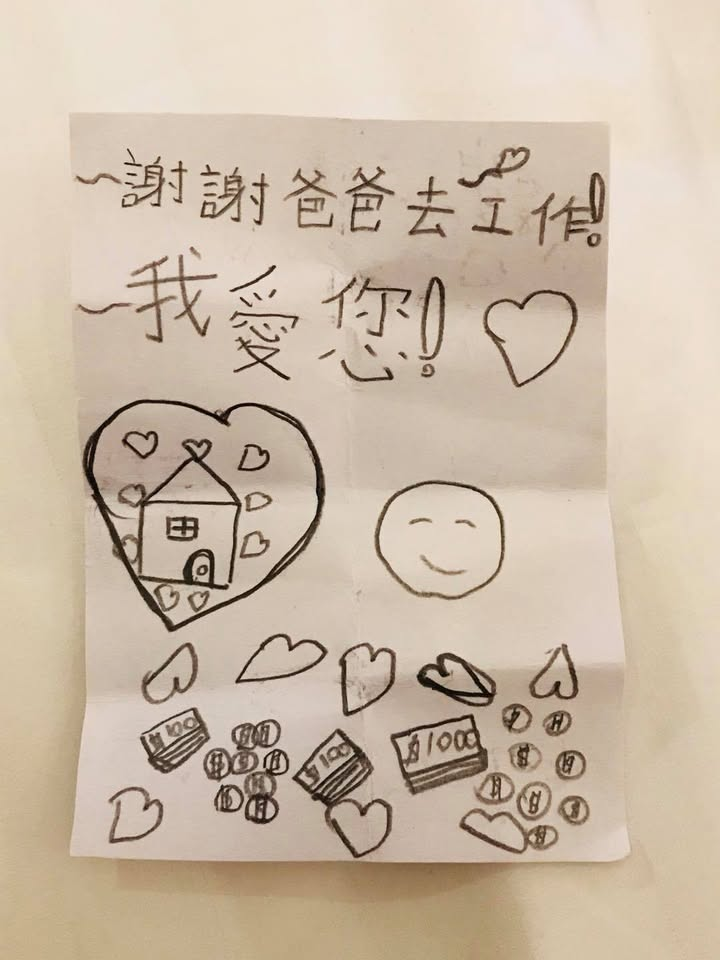 ~謝謝爸爸去工作!
~我愛您!
$100
$100
$1000